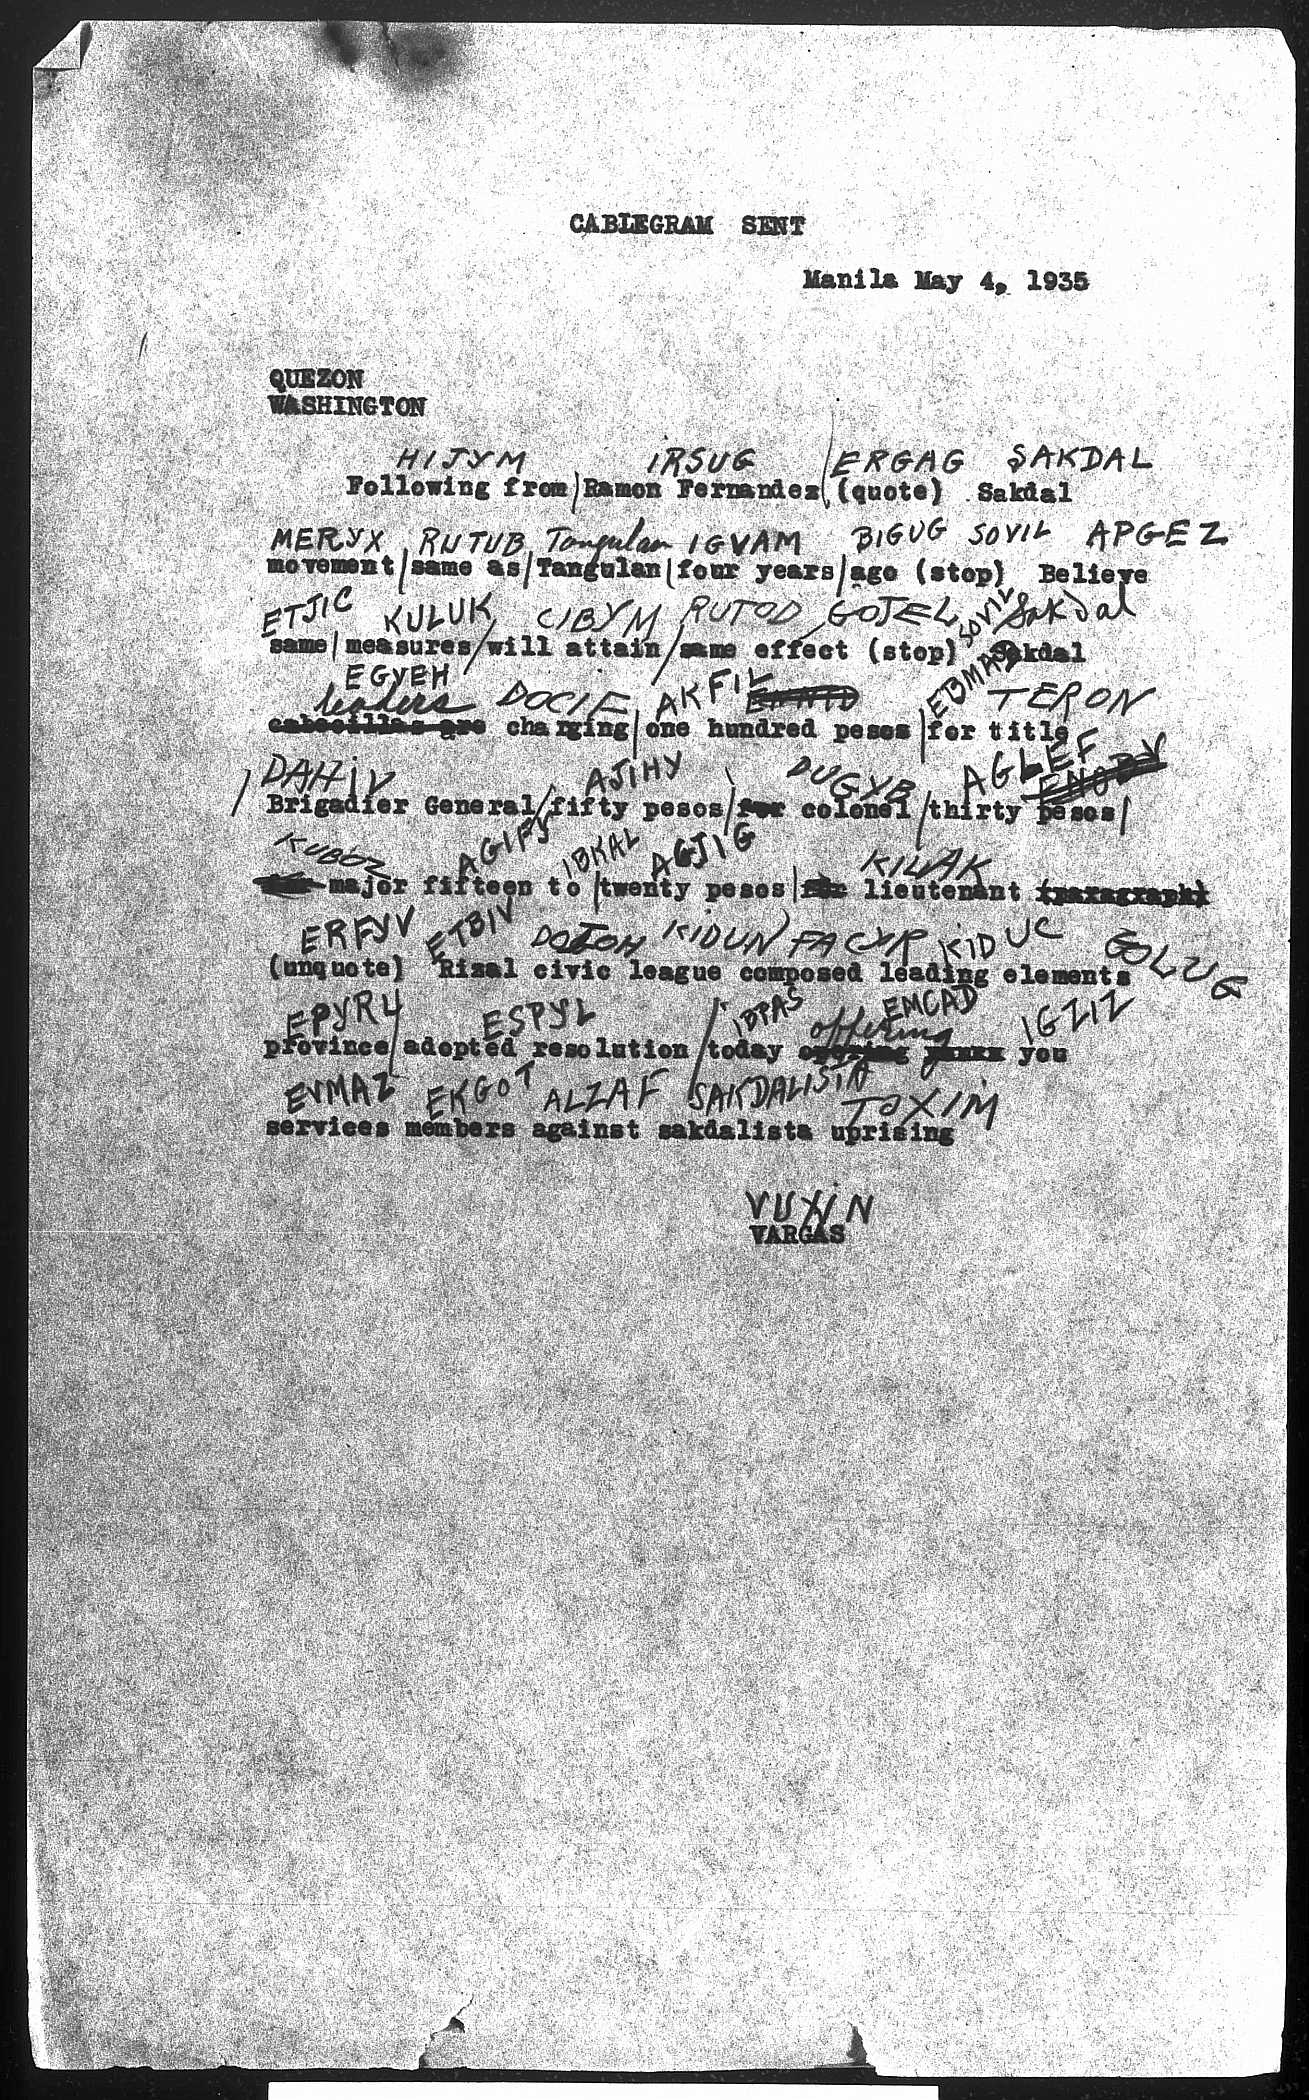 CABLEGRAM SENT
Manila May 4, 1935
QUEZON
WASHINGTON
HIJYM IRSUG ERGAG SAKDAL
Following from/Ramon Fernandez/(quote) Sakdal
MERYX RUTUB Tangulan IGVAM BIGUG SOVIL APGEZ
movement/same as/Tangulan/four years/ago (stop) Believe
ETJIC KULUK CIBYM RUTOD GOJEL SOVIL Sakdal
same/measures/will attain/same effect (stop) Sakdal
EGYEH DOCIF AKFIL EBMAS TERON
leaders
charging/one hundred pesos/for title
DAHIV AJIHY DUGYB AGLEF
/Brigadier General/fifty pesos/for colonel/thirty pesos/
KUBOZ AGIFS IBKAL AGJIG KILAK
major fifteen to/twenty pesos/for lieutenant (paragraph)
ERFYV ETBIV DOJOH KIDUN FACYR KIDUC GOLUG
(unquote) Rizal civic league composed leading elements
EPYRU ESPYL IBPAS EMCAD IGZIZ
offering
province/adopted resolution/today you
EVMAZ EKGOT ALZAF SAKDALISTA TOXIM
services members against sakdalista uprising
VUXIN
VARGAS